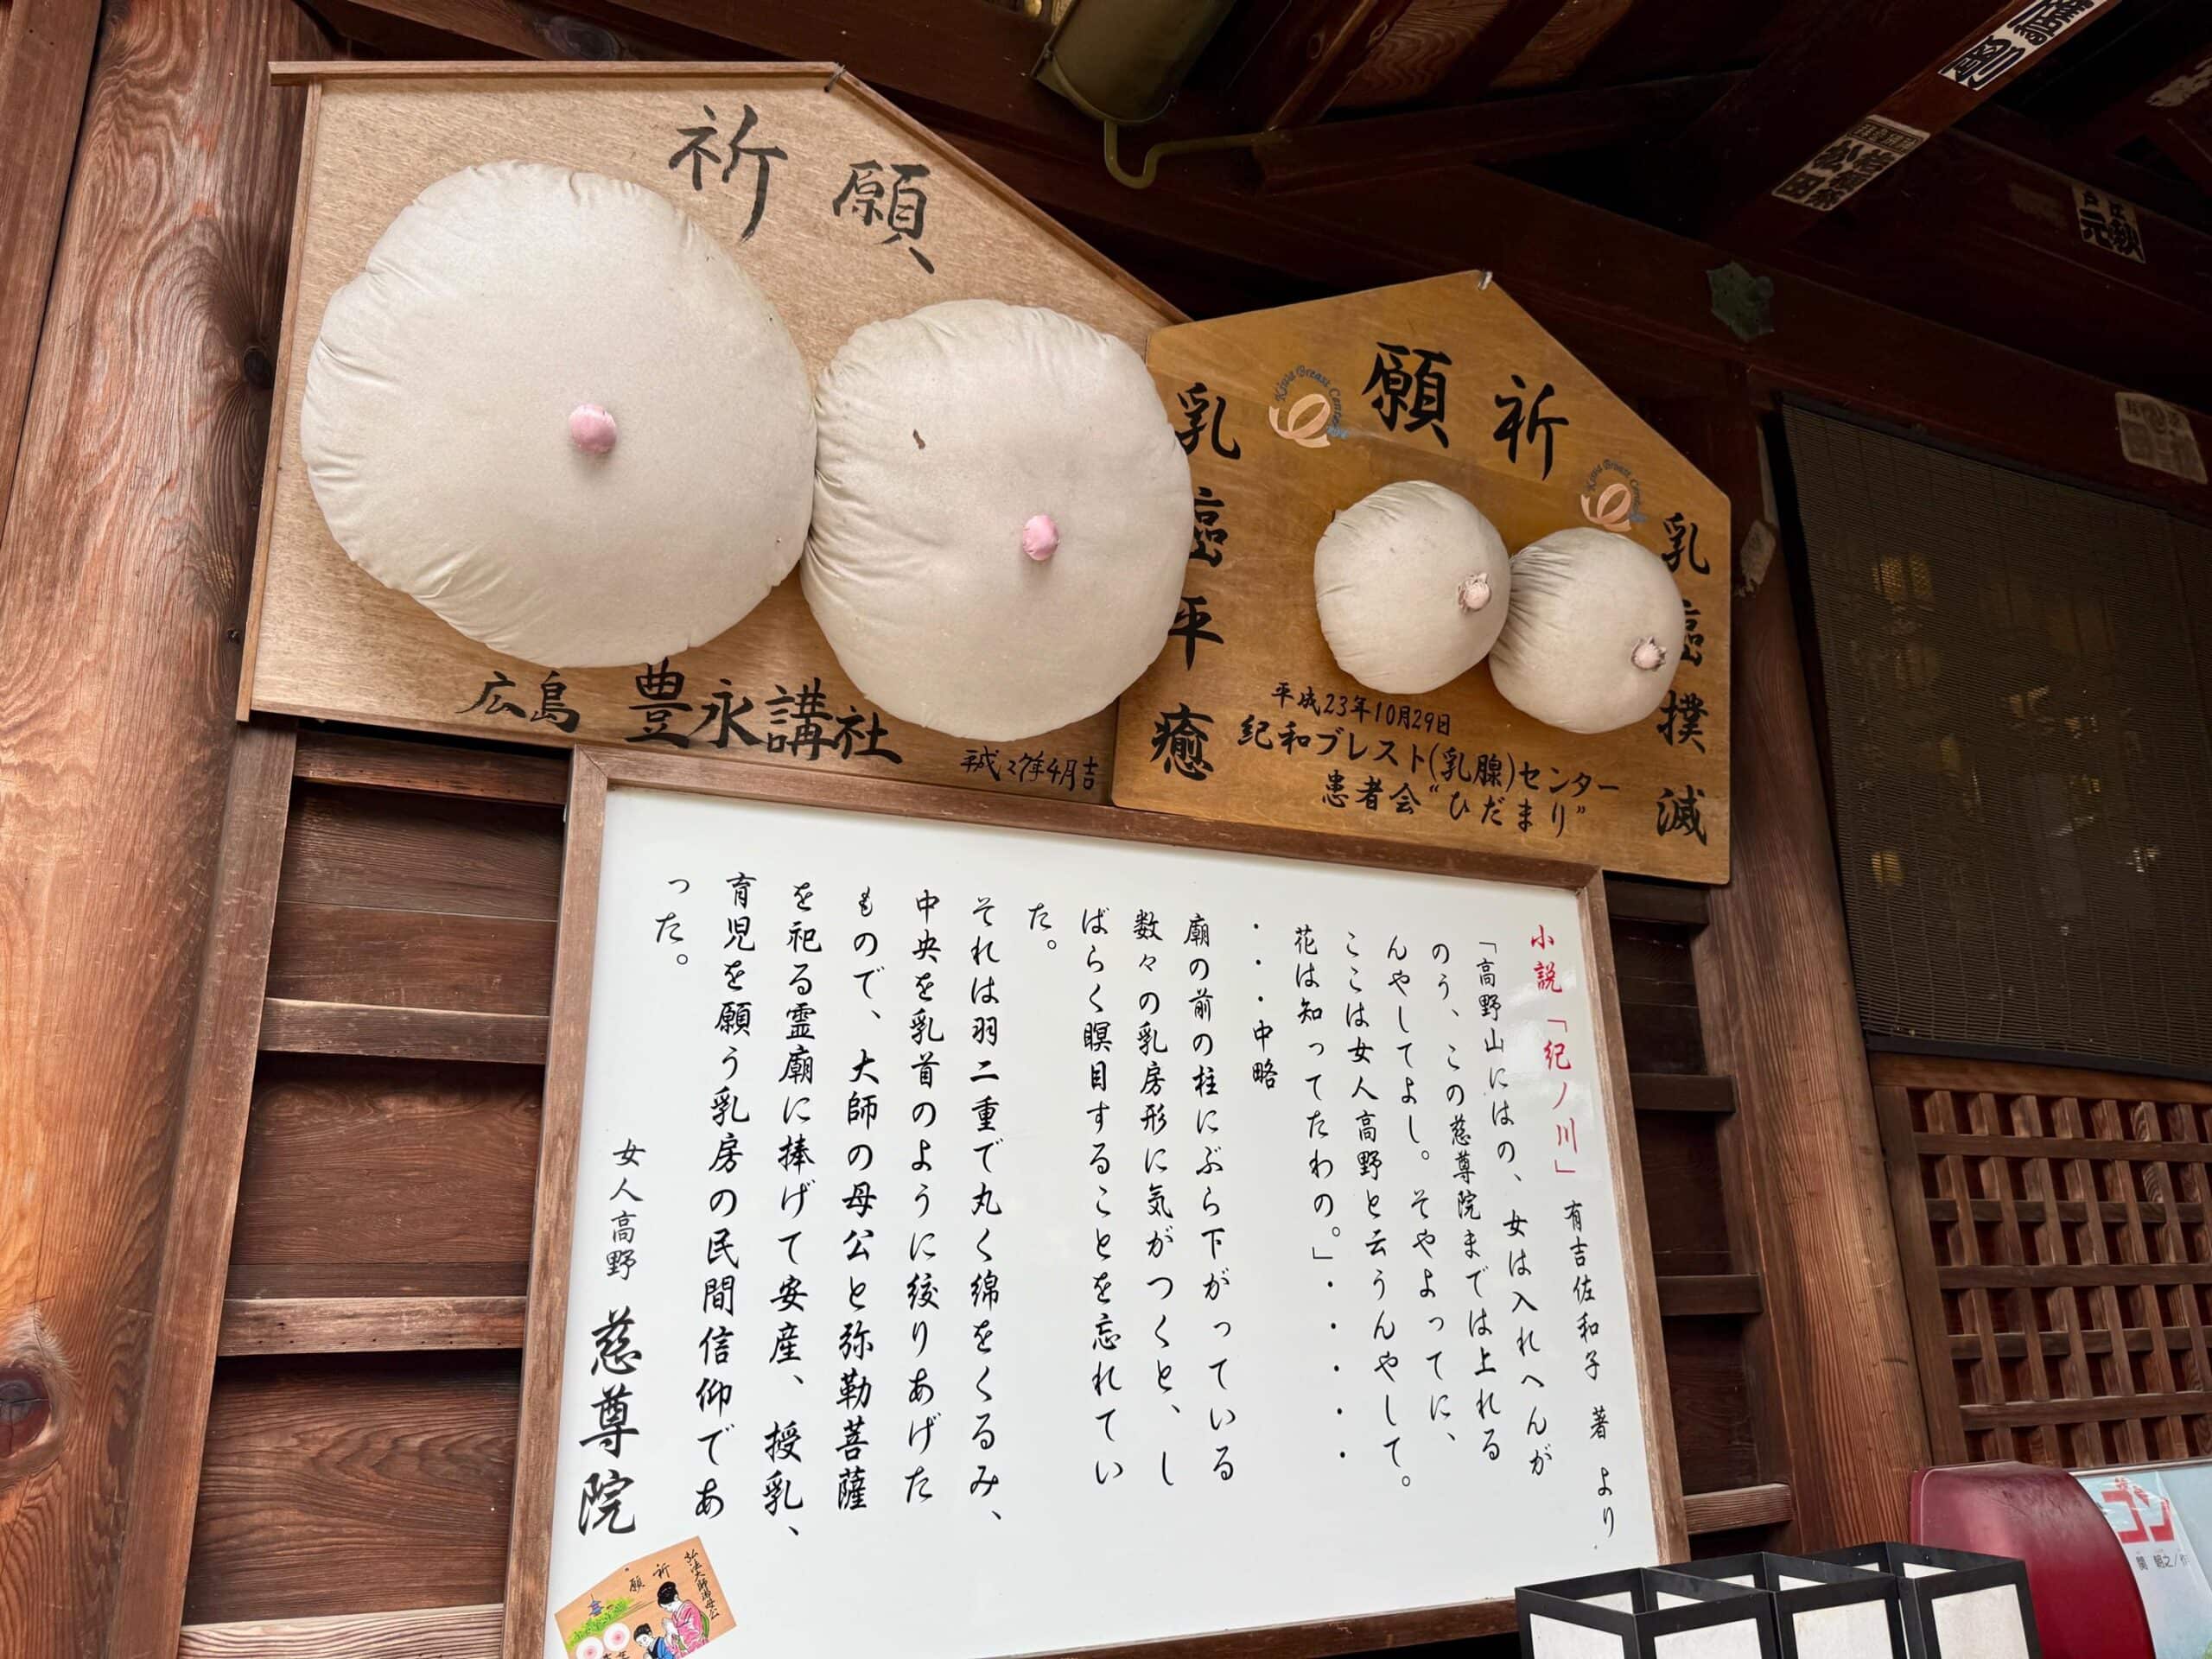 祈願
広島 豊永講社
平成27年4月吉
願祈
乳癌平癒
乳癌撲滅
Kiwa Breast Center
Kiwa Breast Center
平成23年10月29日
紀和ブレスト(乳腺)センター
患者会“ひだまり”
小説「紀ノ川」 有吉佐和子 著 より
「高野山にはの、女は入れへんが
のう、この慈尊院までは上れる
んやしてよし。そやよってに、
ここは女人高野と云うんやして。
花は知ってたわの。」・・・・・
・・・中略
廟の前の柱にぶら下がっている
数々の乳房形に気がつくと、し
ばらく瞑目することを忘れてい
た。
それは羽二重で丸く綿をくるみ、
中央を乳首のように絞りあげた
もので、大師の母公と弥勒菩薩
を祀る霊廟に捧げて安産、授乳、
育児を願う乳房の民間信仰であ
った。
女人高野 慈尊院
祈願
弘法大師御母公
松田
元秋
ゴン